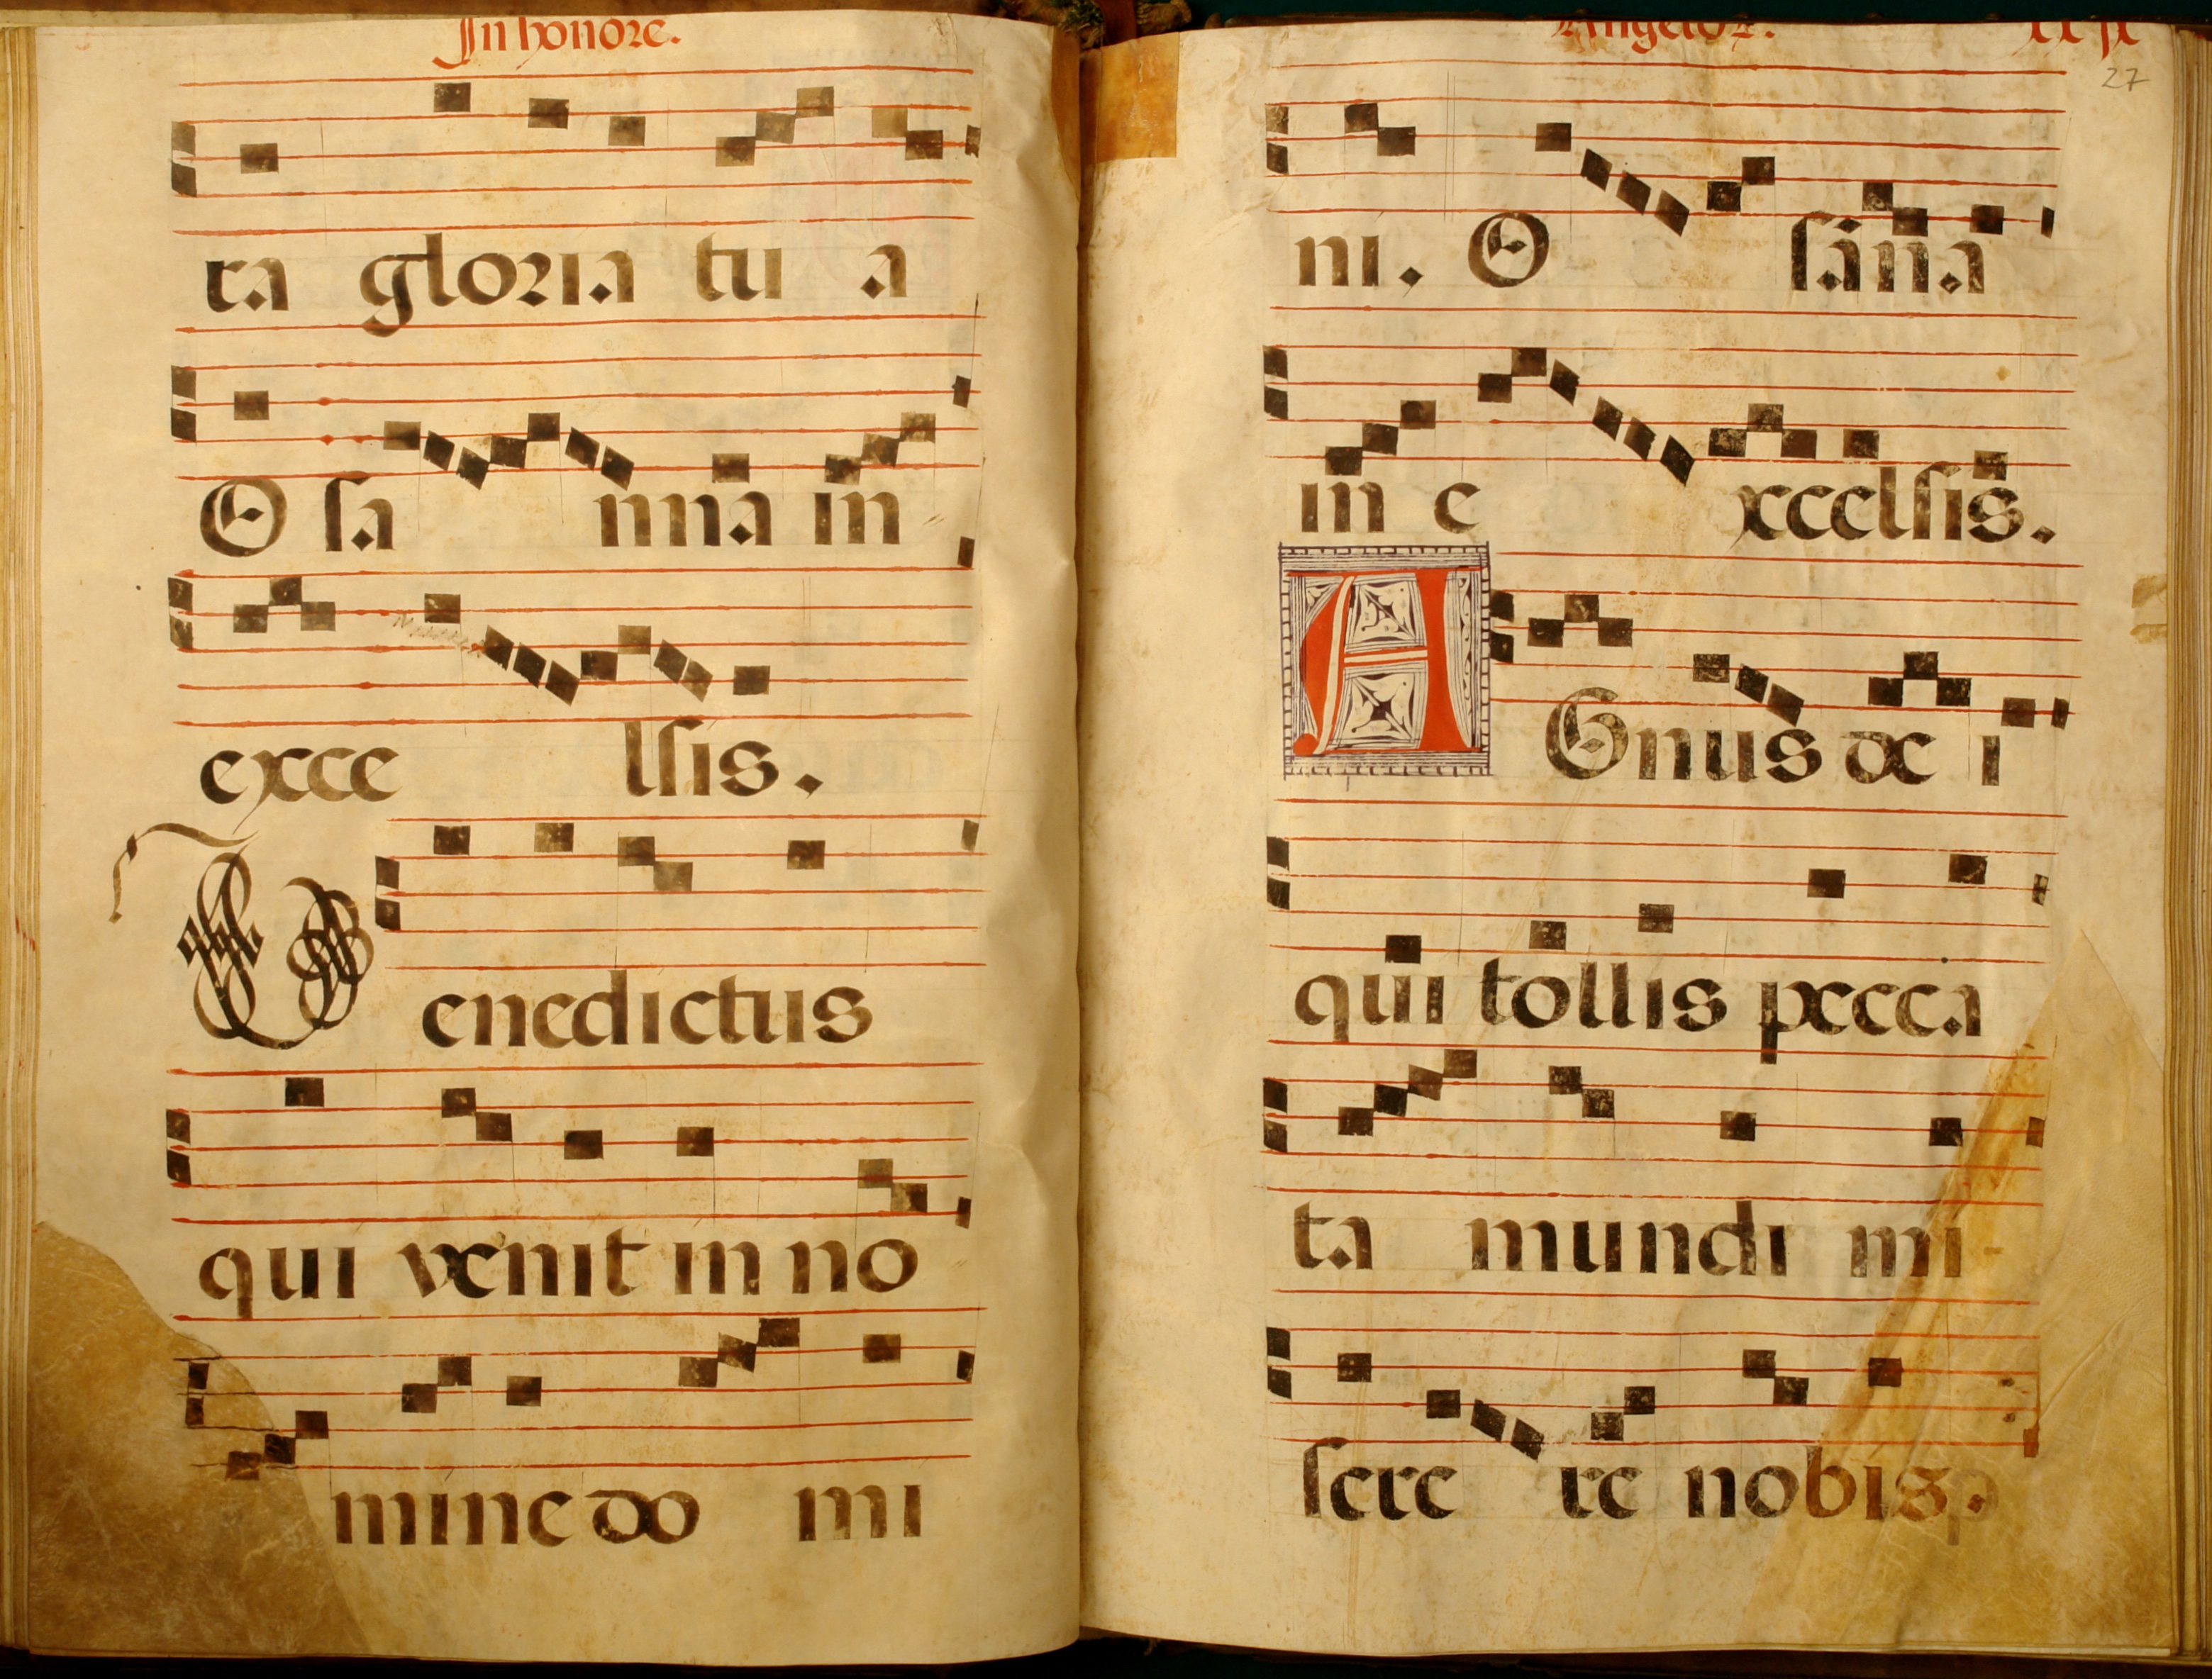 In honore.
ra gloria tu a
O sa nna in
exce lsis.
Benedictus
qui venit in no
mine do mi
Angeloꝝ.
27
ni. O sāna
in e xcelsis.
AGnus de i
qui tollis pecca
ta mundi mi
sere re nobis.